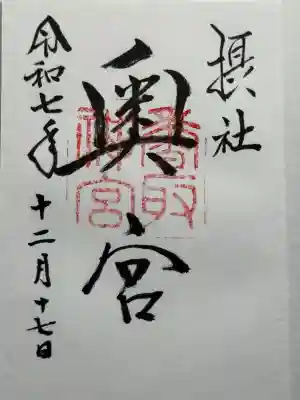 摂社
奥宮
香取
神宮
令和七年十二月十七日